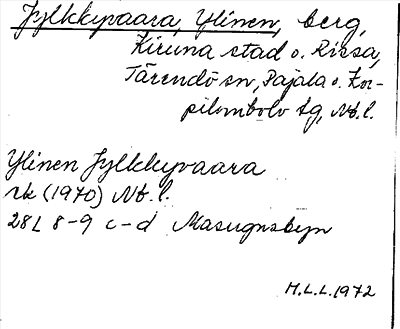 Jylkkyvaara, Ylinen, berg,
Kiruna stad o. Rissa,
Tärendö sn, Pajala o. Kor-
pilombolo tg, Nb.l.
Ylinen Jylkkyvaara
rk (1970) Nb.l.
28L 8-9 c-d Masugnsbyn
H.L.L. 1972